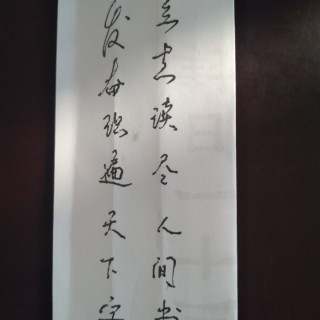 立志读尽人间书
发奋识遍天下字